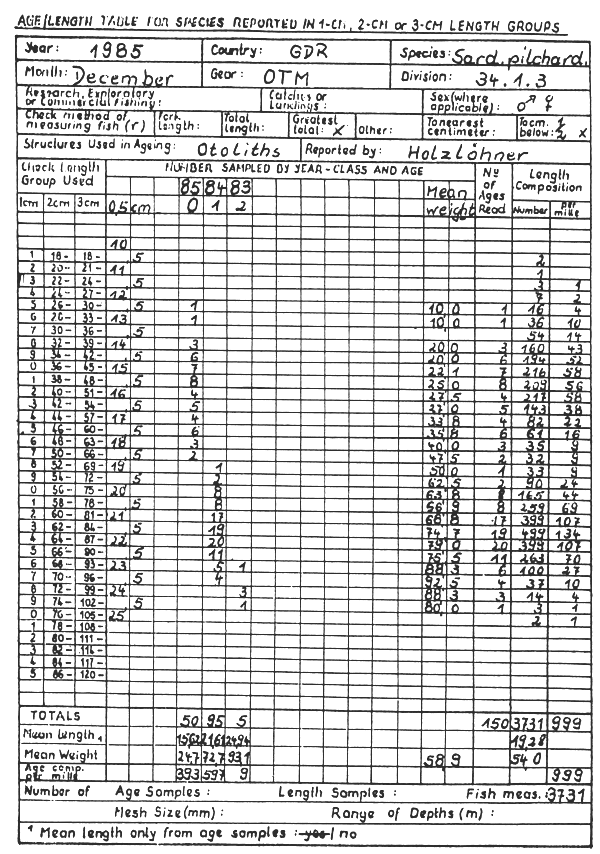 AGE/LENGTH TABLE FOR SPECIES REPORTED IN 1-CM, 2-CM or 3-CM LENGTH GROUPS
Year: 1985 Country: GDR Species: Sard. pilchard.
Month: December Gear: OTM Division: 34.1.3
Research, Exploratory or Commercial Fishing: Catches or Landings: Sex (where applicable): ♂ ♀
Check method of measuring fish (r) Fork Length: Total length: Greatest total: x Other: To nearest centimeter: To cm. below: 1/2 x
Structures Used in Ageing: Otoliths Reported by: Holzlöhner
Check Length Group Used NUMBER SAMPLED BY YEAR-CLASS AND AGE Nº of Ages Read Length Composition
85 84 83 Mean weight
1cm 2cm 3cm 0,5 cm 0 1 2 Number per mille
10
1 18- 18- .5 2
2 20- 21- 11 1
3 22- 24- .5 3 1
4 24- 27- 12 7 2
5 26- 30- .5 1 10 0 1 16 4
6 28- 33- 13 1 10 0 1 36 10
7 30- 36- .5 54 14
8 32- 39- 14 3 20 0 3 160 43
9 34- 42- .5 6 20 0 6 194 52
0 36- 45- 15 7 22 1 7 216 58
1 38- 48- .5 8 25 0 8 209 56
2 40- 51- 16 4 27 5 4 217 58
3 42- 54- .5 5 27 0 5 143 38
4 44- 57- 17 4 33 8 4 82 22
5 46- 60- .5 6 35 8 6 61 16
6 48- 63- 18 3 40 0 3 35 9
7 50- 66- .5 2 47 5 2 32 9
8 52- 69- 19 1 50 0 1 33 9
9 54- 72- .5 2 62 5 2 90 24
0 56- 75- 20 8 63 8 8 165 44
1 58- 78- .5 8 66 9 8 259 69
2 60- 81- 21 17 68 8 17 399 107
3 62- 84- .5 19 74 7 19 499 134
4 64- 87- 22 20 79 0 20 399 107
5 66- 90- .5 11 75 5 11 263 70
6 68- 93- 23 5 1 88 3 6 100 27
7 70- 96- .5 4 92 5 4 37 10
8 72- 99- 24 3 88 3 3 14 4
9 74- 102- .5 1 80 0 1 3 1
0 76- 105- 25 2 1
1 78- 108-
2 80- 111-
3 82- 114-
4 84- 117-
5 86- 120-
TOTALS 50 95 5 150 3731 999
Mean Length 1 15,62 21,61 24,94 19,28
Mean Weight 24,7 72,7 93,1 58 9 54 0
Age comp. per mille 393 597 9 999
Number of Age Samples: Length Samples: Fish meas.: 3731
Mesh Size (mm): Range of Depths (m):
1 Mean length only from age samples: yes/no